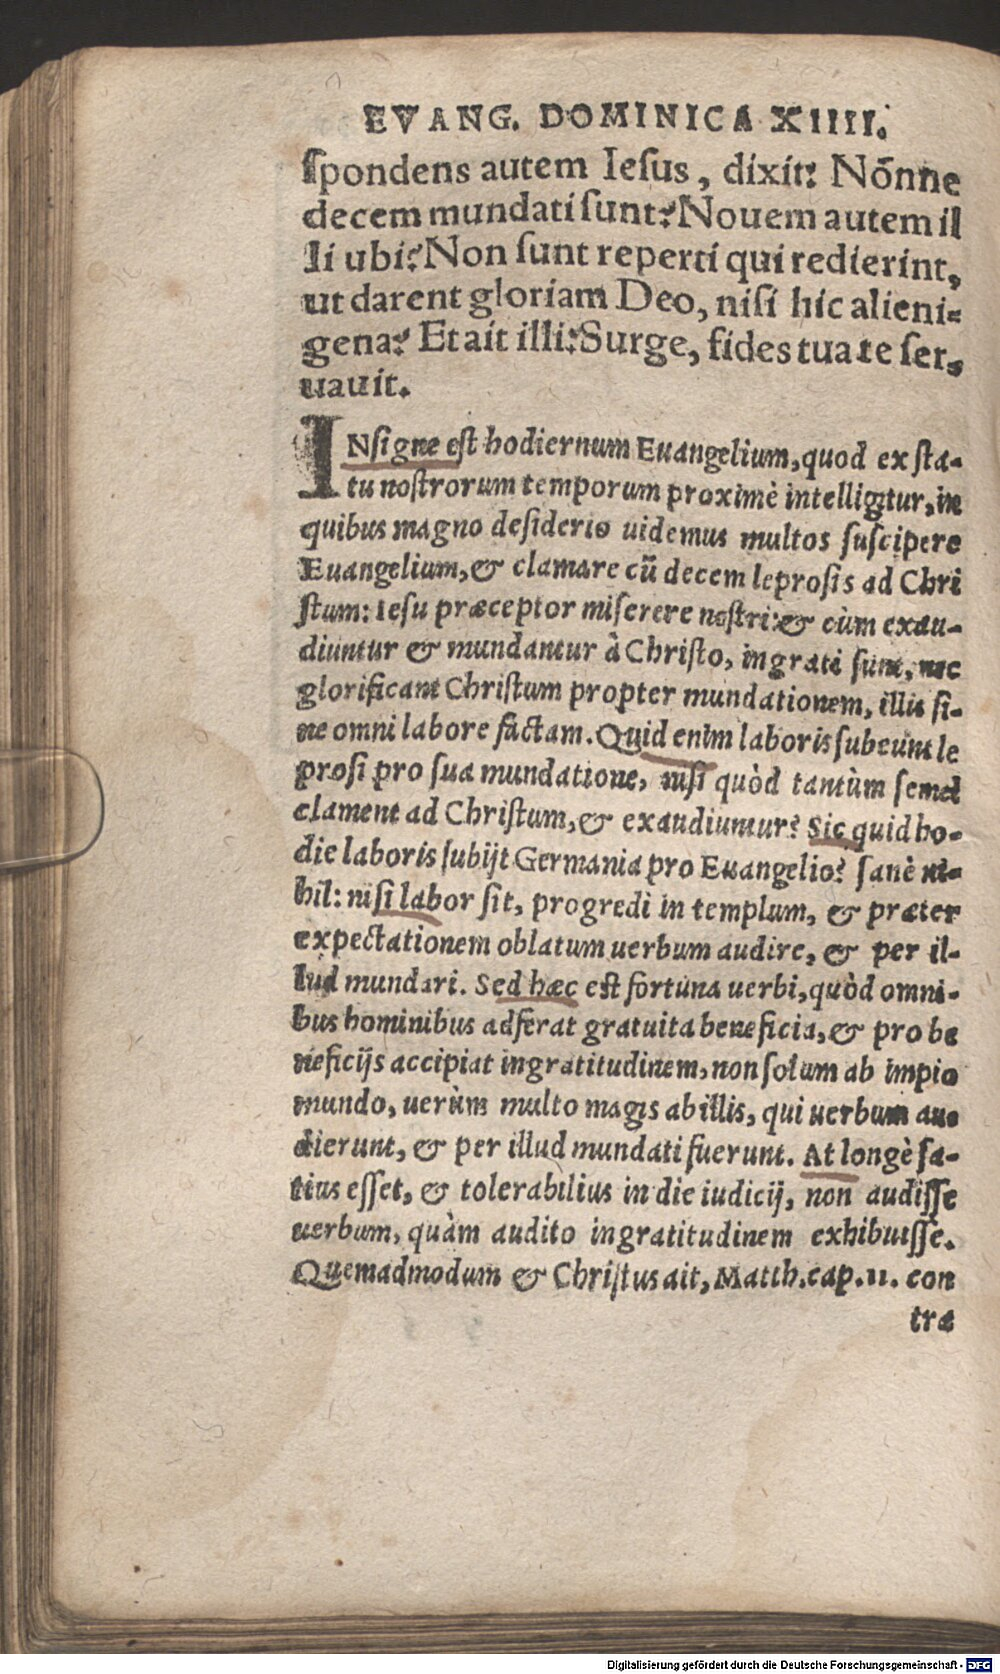 EVANG. DOMINICA XIIII.
spondens autem Iesus, dixit: Nónne
decem mundati sunt? Nouem autem il
li ubi? Non sunt reperti qui redierint,
ut darent gloriam Deo, nisi hic alieni-
gena? Et ait illi: Surge, fides tua te ser,
uauit.
INsigne est hodiernum Euangelium, quod ex sta-
tu nostrorum temporum proximè intelligitur, in
quibus magno desiderio uidemus multos suscipere
Euangelium, & clamare cū decem leprosis ad Chri
stum: Iesu præceptor miserere nostri: & cùm exau-
diuntur & mundantur à Christo, ingrati sunt, nec
glorificant Christum propter mundationem, illis si-
ne omni labore factam. Quid enim laboris subeunt le
prosi pro sua mundatione, nisi quòd tantùm semel
clament ad Christum, & exaudiuntur? Sic quid ho-
die laboris subijt Germania pro Euangelio? sanè ni-
hil: nisi labor sit, progredi in templum, & præter
expectationem oblatum uerbum audire, & per il-
lud mundari. Sed hæc est fortuna uerbi, quòd omni-
bus hominibus adferat gratuita beneficia, & pro be
neficijs accipiat ingratitudinem, non solum ab impio
mundo, uerùm multo magis ab illis, qui uerbum au-
dierunt, & per illud mundati fuerunt. At longè sa-
tius esset, & tolerabilius in die iudicij, non audisse
uerbum, quàm audito ingratitudinem exhibuisse.
Quemadmodum & Christus ait, Matth. cap. 11. con
tra
Digitalisierung gefördert durch die Deutsche Forschungsgemeinschaft - DFG